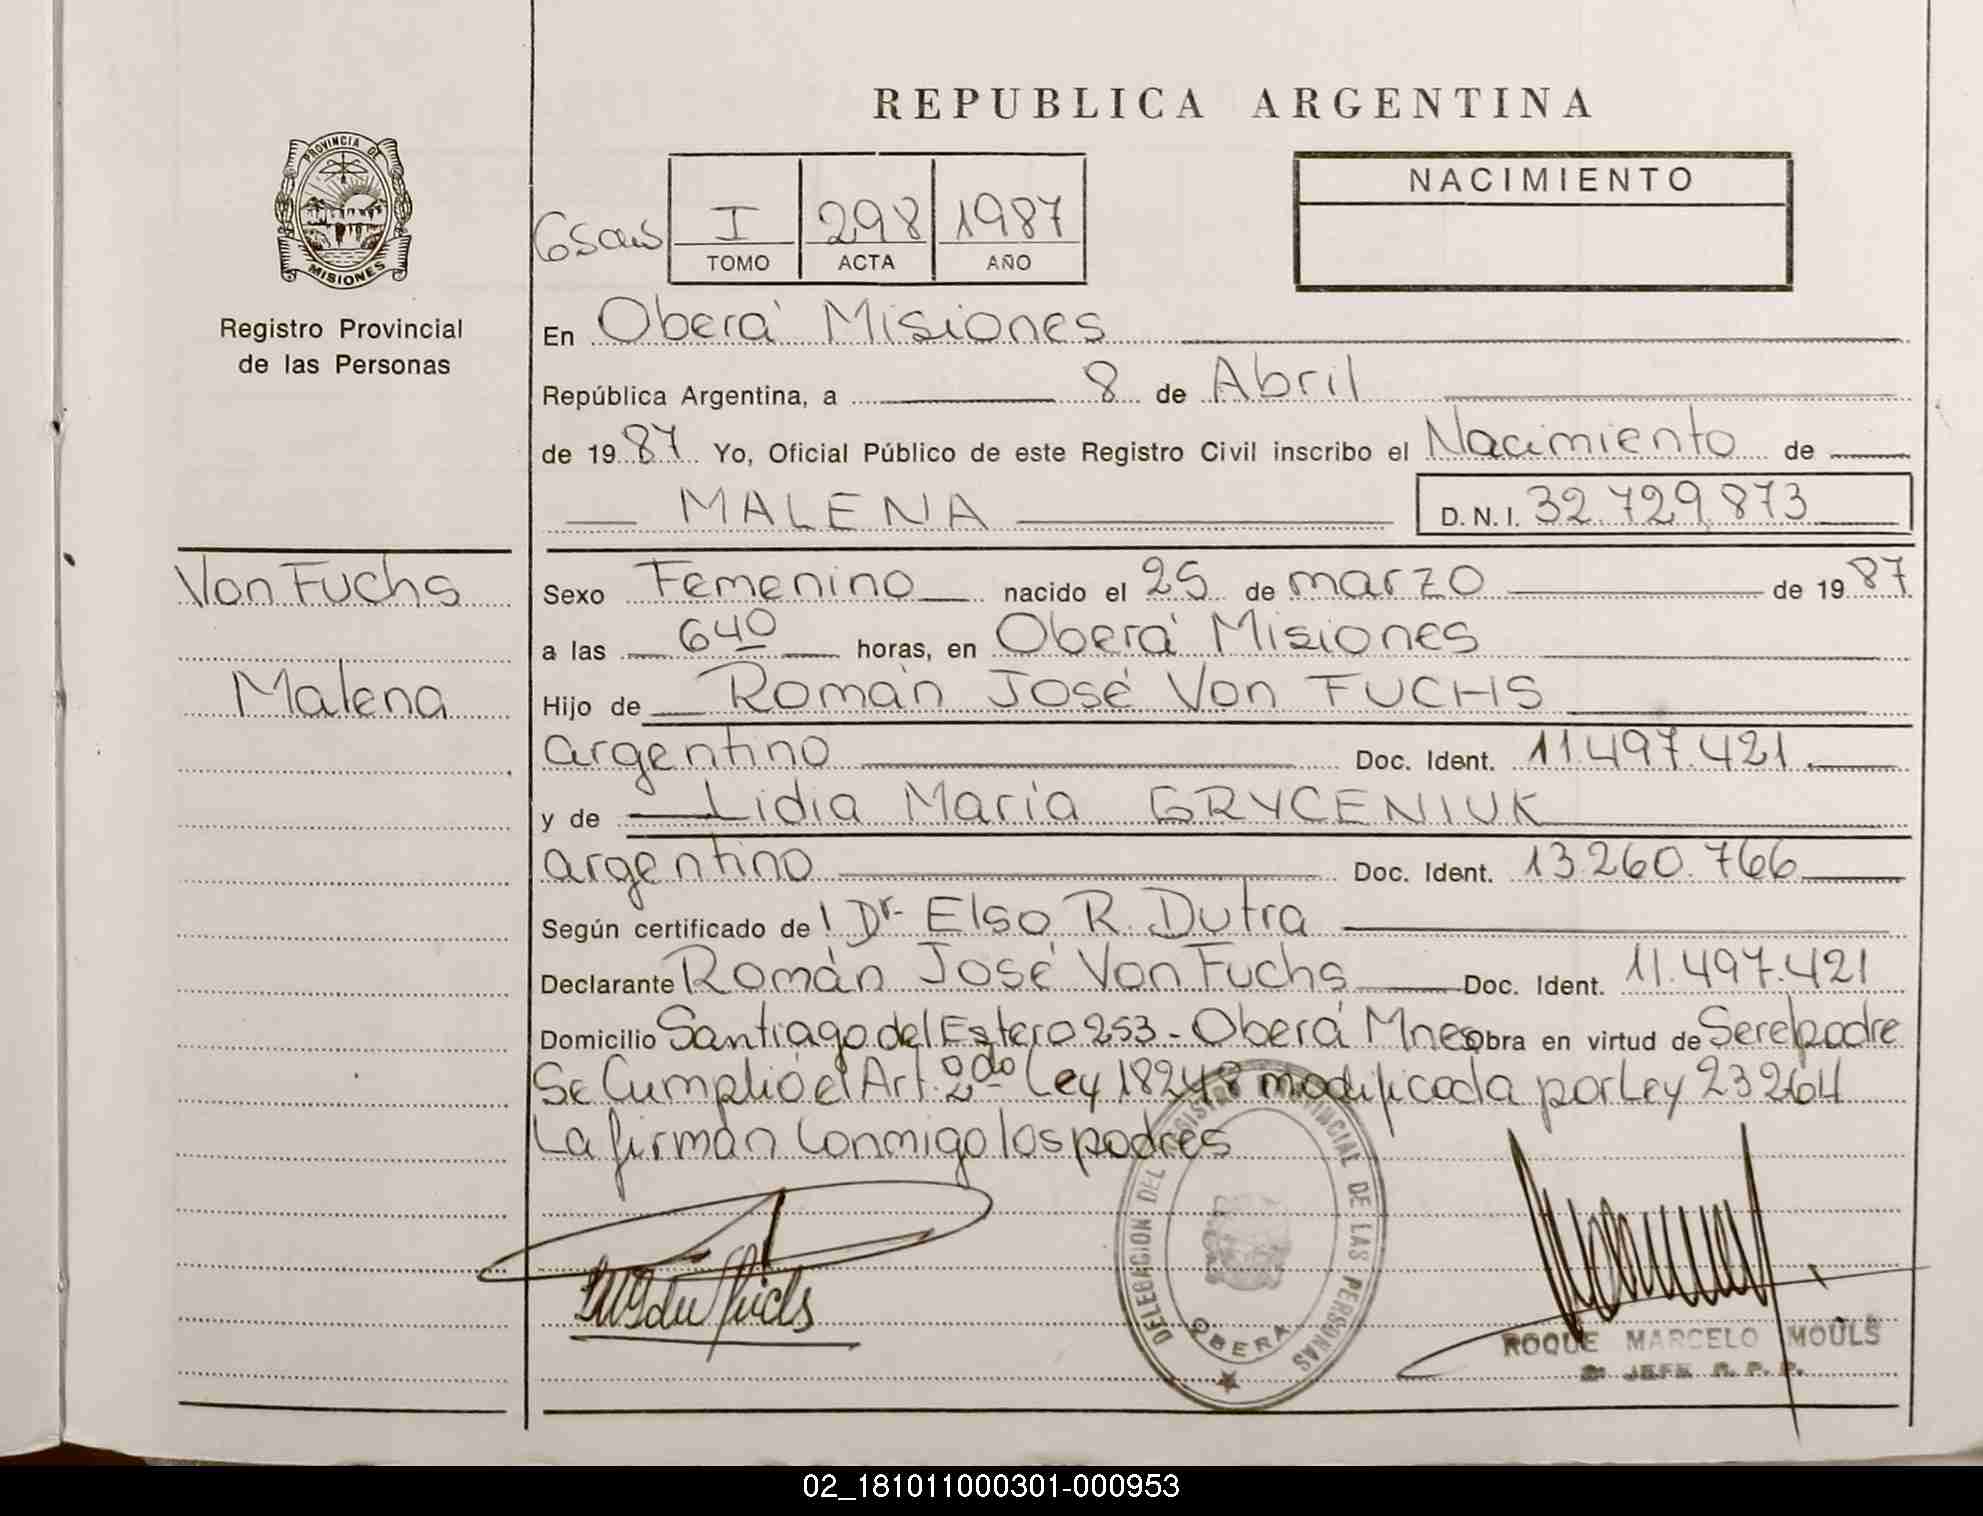 REPUBLICA ARGENTINA
PROVINCIA DE
MISIONES
Registro Provincial
de las Personas
I 298 1987
TOMO ACTA AÑO
NACIMIENTO
En Oberá Misiones
República Argentina, a 8 de Abril
de 1987 Yo, Oficial Público de este Registro Civil inscribo el Nacimiento de
MALENA D. N. I. 32.729.873
Von Fuchs
Malena
Sexo Femenino nacido el 25 de marzo de 1987
a las 640 horas, en Oberá Misiones
Hijo de Román José Von FUCHS
argentino Doc. Ident. 11.497.421
y de Lidia María GRYCENIUK
argentino Doc. Ident. 13.260.766
Según certificado de l Dr. Elso R. Dutra
Declarante Román José Von Fuchs Doc. Ident. 11.497.421
Domicilio Santiago del Estero 253 - Oberá Mnes obra en virtud de Ser el padre
Se Cumplió el Art. 2do Ley 18248 modificada por Ley 23264
La firman conmigo los padres
DELEGACION DEL REGISTRO PROVINCIAL DE LAS PERSONAS
OBERA
ROQUE MARCELO MOULS
JEFE R. P. P.
02_181011000301-000953